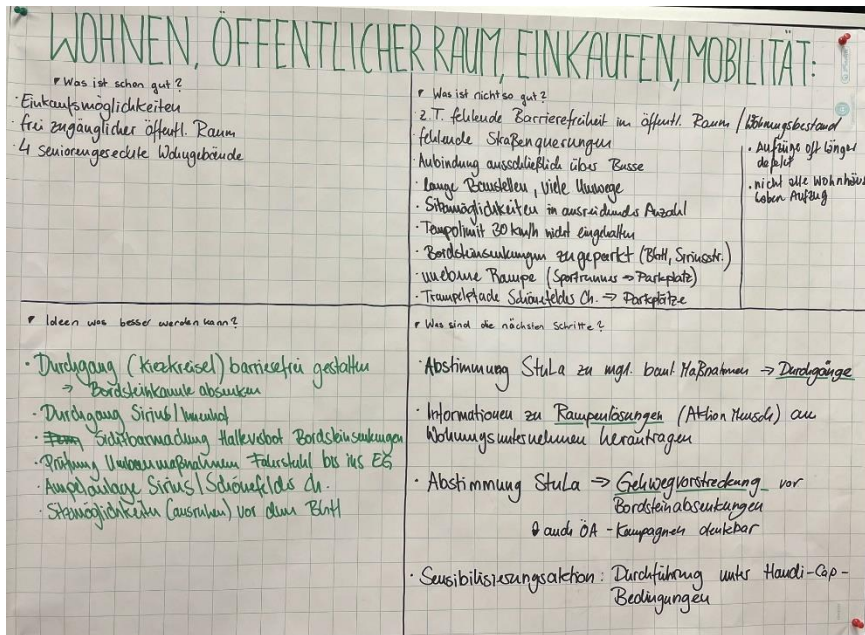 WOHNEN, ÖFFENTLICHER RAUM, EINKAUFEN, MOBILITÄT:
Was ist schon gut?
· Einkaufsmöglichkeiten
· frei zugänglicher öffentl. Raum
· 4 seniorengerechte Wohngebäude
Was ist nicht so gut?
· z.T. fehlende Barrierefreiheit im öffentl. Raum / Wohnungsbestand
· fehlende Straßenquerungen
· Anbindung ausschließlich über Busse
· lange Baustellen, viele Umwege
· Sitzmöglichkeiten in ausreichender Anzahl
· Tempolimit 30 km/h nicht eingehalten
· Bordsteinsenkungen zugeparkt (BhH, Siriusstr.)
· unebene Rampe (Sportramus → Parkplatz)
· Trampelpfade Schönefelder Ch. → Parkplätze
· Aufzüge oft länger
defekt
· nicht alle Wohnhäus
haben Aufzug
Ideen was besser werden kann?
· Durchgang (Kiezkreisel) barrierefrei gestalten
→ Bordsteinkante absenken
· Durchgang Sirius / Innenhof
· Sichtbarmachung Halteverbot Bordsteinsenkungen
· Prüfung Umbaumaßnahmen Fahrstuhl bis ins EG
· Ampelanlage Sirius / Schönefelder Ch.
· Sitzmöglichkeiten (ausruhen) vor dem BhH
Was sind die nächsten Schritte?
· Abstimmung StuLa zu mgl. baul. Maßnahmen → Durchgänge
· Informationen zu Rampenlösungen (Aktion Mensch) an
Wohnungsunternehmen herantragen
· Abstimmung StuLa → Gehwegvorstreckung vor
Bordsteinabsenkungen
auch ÖA - Kampagnen denkbar
· Sensibilisierungsaktion: Durchführung unter Handi-Cap-
Bedingungen